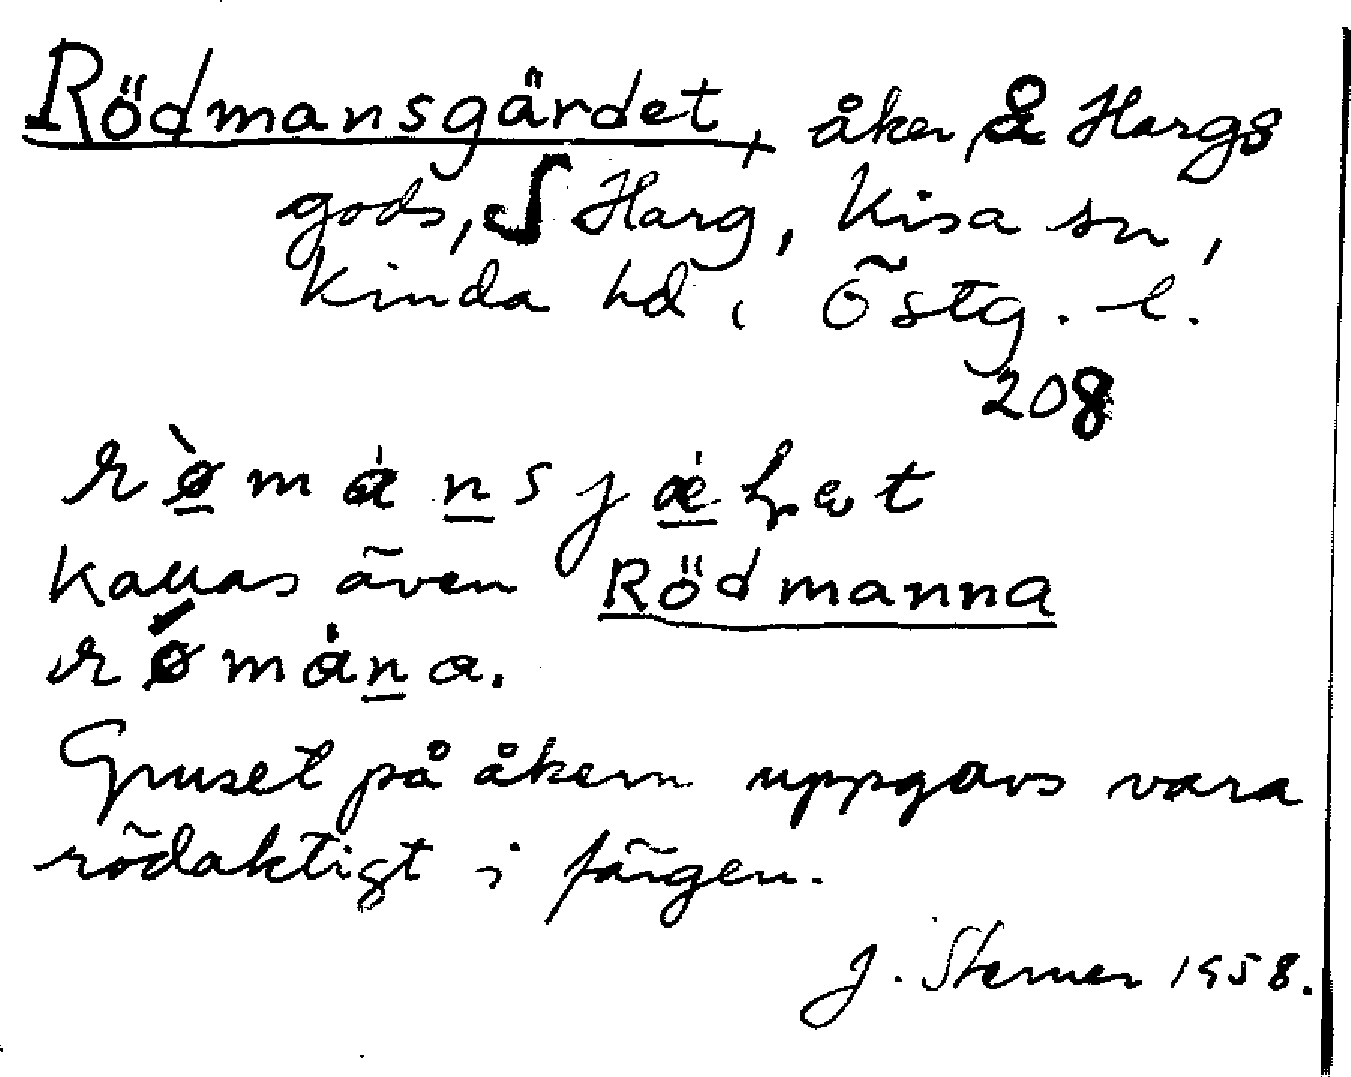 Rödmansgärdet, åker, å Hargs
gods, Harg, Kisa sn,
Kinda hd, Östg. l.
208
kallas även Rödmanna
Gruset på åkern uppgavs vara
rödaktigt i färgen.
J. Sterner 1958.